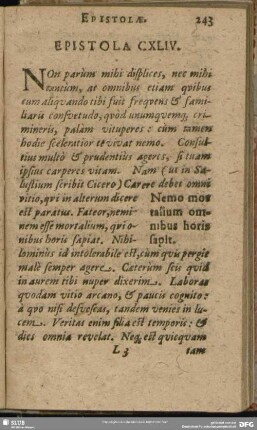 EPISTOLÆ. 243
EPISTOLA CXLIV.
NOn parùm mihi displices, nec mihi
tantùm, at omnibus etiam quibus
cum aliquando tibi fuit frequens & fami-
liaris consuetudo, quòd unumquemq; cri-
mineris, palam vituperes: cum tamen
hodie sceleratior te vivat nemo. Consul-
tius multò & prudentius ageres, si tuam
ipsius carperes vitam. Nam (ut in Sa-
lustium scribit Cicero) Carere debet omni
vitio, qui in alterum dicere
est paratus. Fateor, nemi-
nem esse mortalium, qui o-
nibus horis sapiat. Nihi-
Nemo mor
talium om-
nibus horis
sapit.
lominus id intolerabile est, cùm quis pergit
malè semper agere. Cæterùm scis quid
in aurem tibi nuper dixerim. Laboras
quodam vitio arcano, & paucis cognito:
à quo nisi desuescas, tandem venies in lu-
cem. Veritas enim filia est temporis: &
dies omnia revelat. Neq; est quicquam
L 3 tam
SLUB
DFG